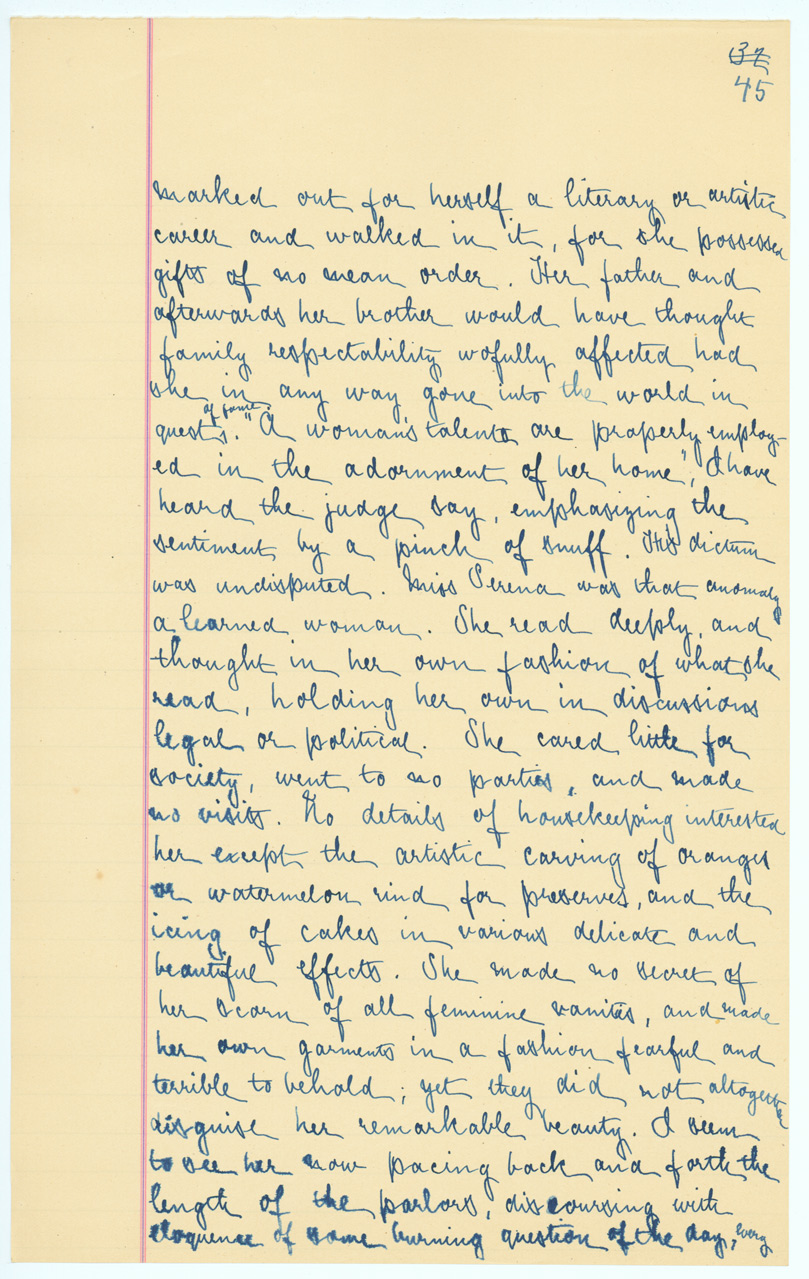 32
45
marked out for herself a literary or artistic
career and walked in it, for she possessed
gifts of no mean order. Her father and
afterwards her brother would have thought
family respectability wofully affected had
she in any way gone into the world in
of fame.
quest. "A woman's talents are properly employ-
ed in the adornment of her home", I have
heard the judge say, emphasizing the
sentiment by a pinch of snuff. His dictum
was undisputed. Miss Serena was that anomaly
a learned woman. She read deeply, and
thought in her own fashion of what she
read, holding her own in discussions
legal or political. She cared little for
society, went to no parties, and made
no visits. No details of housekeeping interested
her except the artistic carving of oranges
or watermelon rind for preserves, and the
icing of cakes in various delicate and
beautiful effects. She made no secret of
her scorn of all feminine vanities, and made
her own garments in a fashion fearful and
terrible to behold; yet they did not altogether
disguise her remarkable beauty. I seem
to see her now pacing back and forth the
length of the parlors, discoursing with
eloquence of some burning question of the day, every